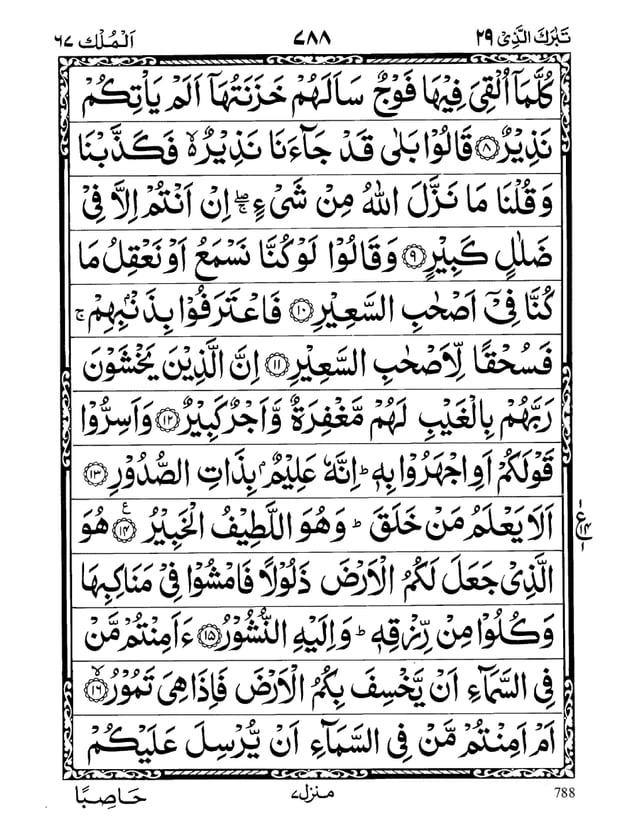 تَبٰرَكَ الَّذِیْ ٢٩ ٧٨٨ اَلْمُلْك ٦٧
كُلَّمَاۤ اُلْقِیَ فِیْهَا فَوْجٌ سَاَلَهُمْ خَزَنَتُهَاۤ اَلَمْ یَاْتِكُمْ
نَذِیْرٌ ۝٨ قَالُوْا بَلٰی قَدْ جَآءَنَا نَذِیْرٌ ۙ۬ فَكَذَّبْنَا
وَ قُلْنَا مَا نَزَّلَ اللّٰهُ مِنْ شَیْءٍ ۖۚ اِنْ اَنْتُمْ اِلَّا فِیْ
ضَلٰلٍ كَبِیْرٍ ۝٩ وَ قَالُوْا لَوْ كُنَّا نَسْمَعُ اَوْ نَعْقِلُ مَا
كُنَّا فِیْۤ اَصْحٰبِ السَّعِیْرِ ۝١٠ فَاعْتَرَفُوْا بِذَنْۢبِهِمْ ۚ
فَسُحْقًا لِّاَصْحٰبِ السَّعِیْرِ ۝١١ اِنَّ الَّذِیْنَ یَخْشَوْنَ
رَبَّهُمْ بِالْغَیْبِ لَهُمْ مَّغْفِرَةٌ وَّ اَجْرٌ كَبِیْرٌ ۝١٢ وَ اَسِرُّوْا
قَوْلَكُمْ اَوِ اجْهَرُوْا بِهٖ ؕ اِنَّهٗ عَلِیْمٌۢ بِذَاتِ الصُّدُوْرِ ۝١٣
اَلَا یَعْلَمُ مَنْ خَلَقَ ؕ وَ هُوَ اللَّطِیْفُ الْخَبِیْرُ ۝١٤ ع هُوَ
ع ١٤ ١
الَّذِیْ جَعَلَ لَكُمُ الْاَرْضَ ذَلُوْلًا فَامْشُوْا فِیْ مَنَاكِبِهَا
وَ كُلُوْا مِنْ رِّزْقِهٖ ؕ وَ اِلَیْهِ النُّشُوْرُ ۝١٥ ءَاَمِنْتُمْ مَّنْ
فِی السَّمَآءِ اَنْ یَّخْسِفَ بِكُمُ الْاَرْضَ فَاِذَا هِیَ تَمُوْرُ ۙ۝١٦
اَمْ اَمِنْتُمْ مَّنْ فِی السَّمَآءِ اَنْ یُّرْسِلَ عَلَیْكُمْ
788 منزل ٧ حَاصِبًا